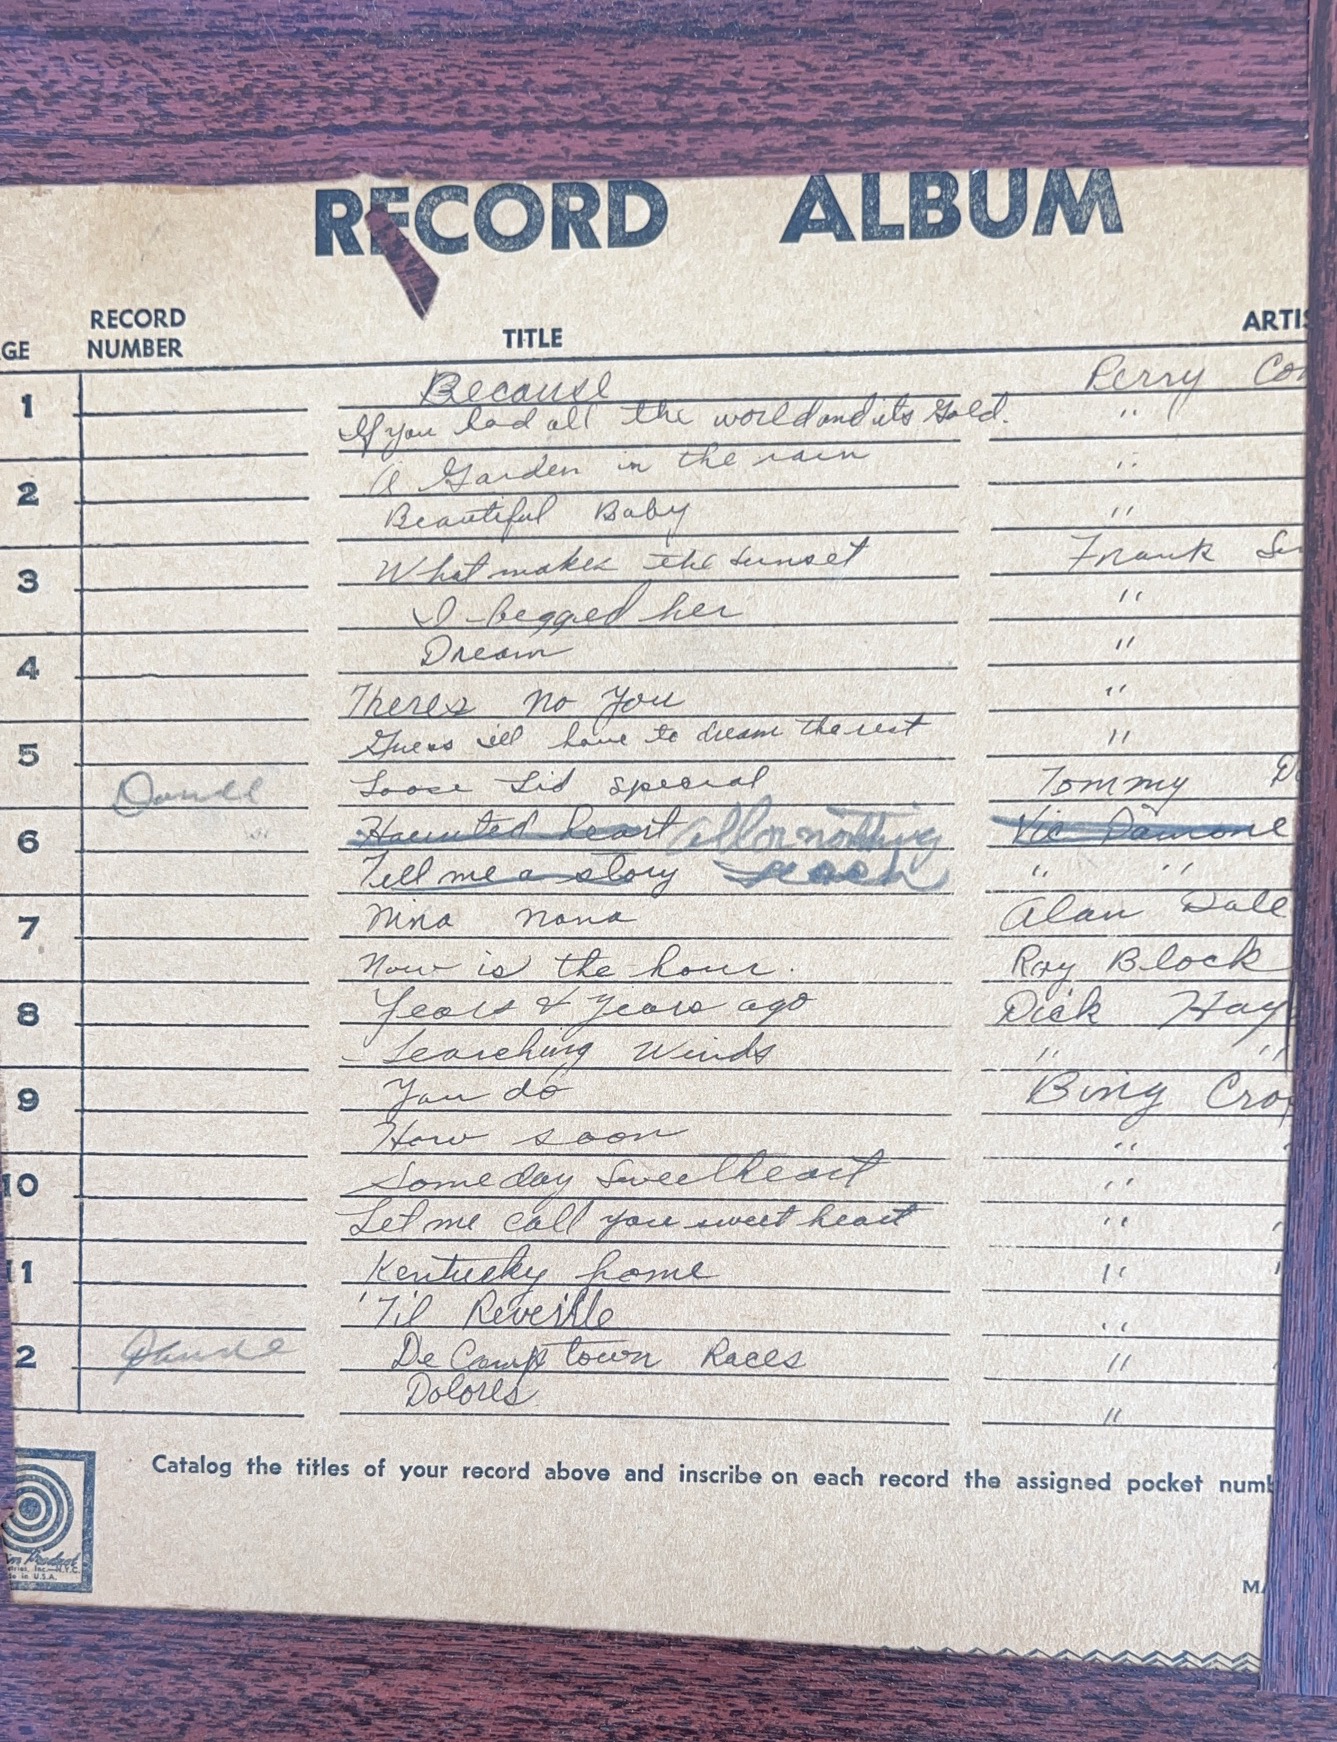 RECORD ALBUM
RECORD
NUMBER
GE TITLE ARTIS
1 Because Perry Co
If you had all the world and its Gold. "
2 A Garden in the rain "
Beautiful Baby "
3 What makes the sunset Frank
I begged her "
4 Dream "
Theres no you "
5 Guess ill have to dream the rest "
Loose Lid special Tommy D
6 Haunted heart all or nothing Vic Damone
Tell me a story " "
7 Nina nana Alan Dale
Now is the hour. Ray Block
8 Years & years ago Dick Hay
Searching Winds " "
9 You do Bing Cro
How soon " "
10 Someday Sweetheart "
Let me call you sweet heart "
11 Kentucky home "
'Til Reveille "
2 De Camptown Races "
Dolores "
Catalog the titles of your record above and inscribe on each record the assigned pocket numb
Inc.—N.Y.C.
in U.S.A.
MA